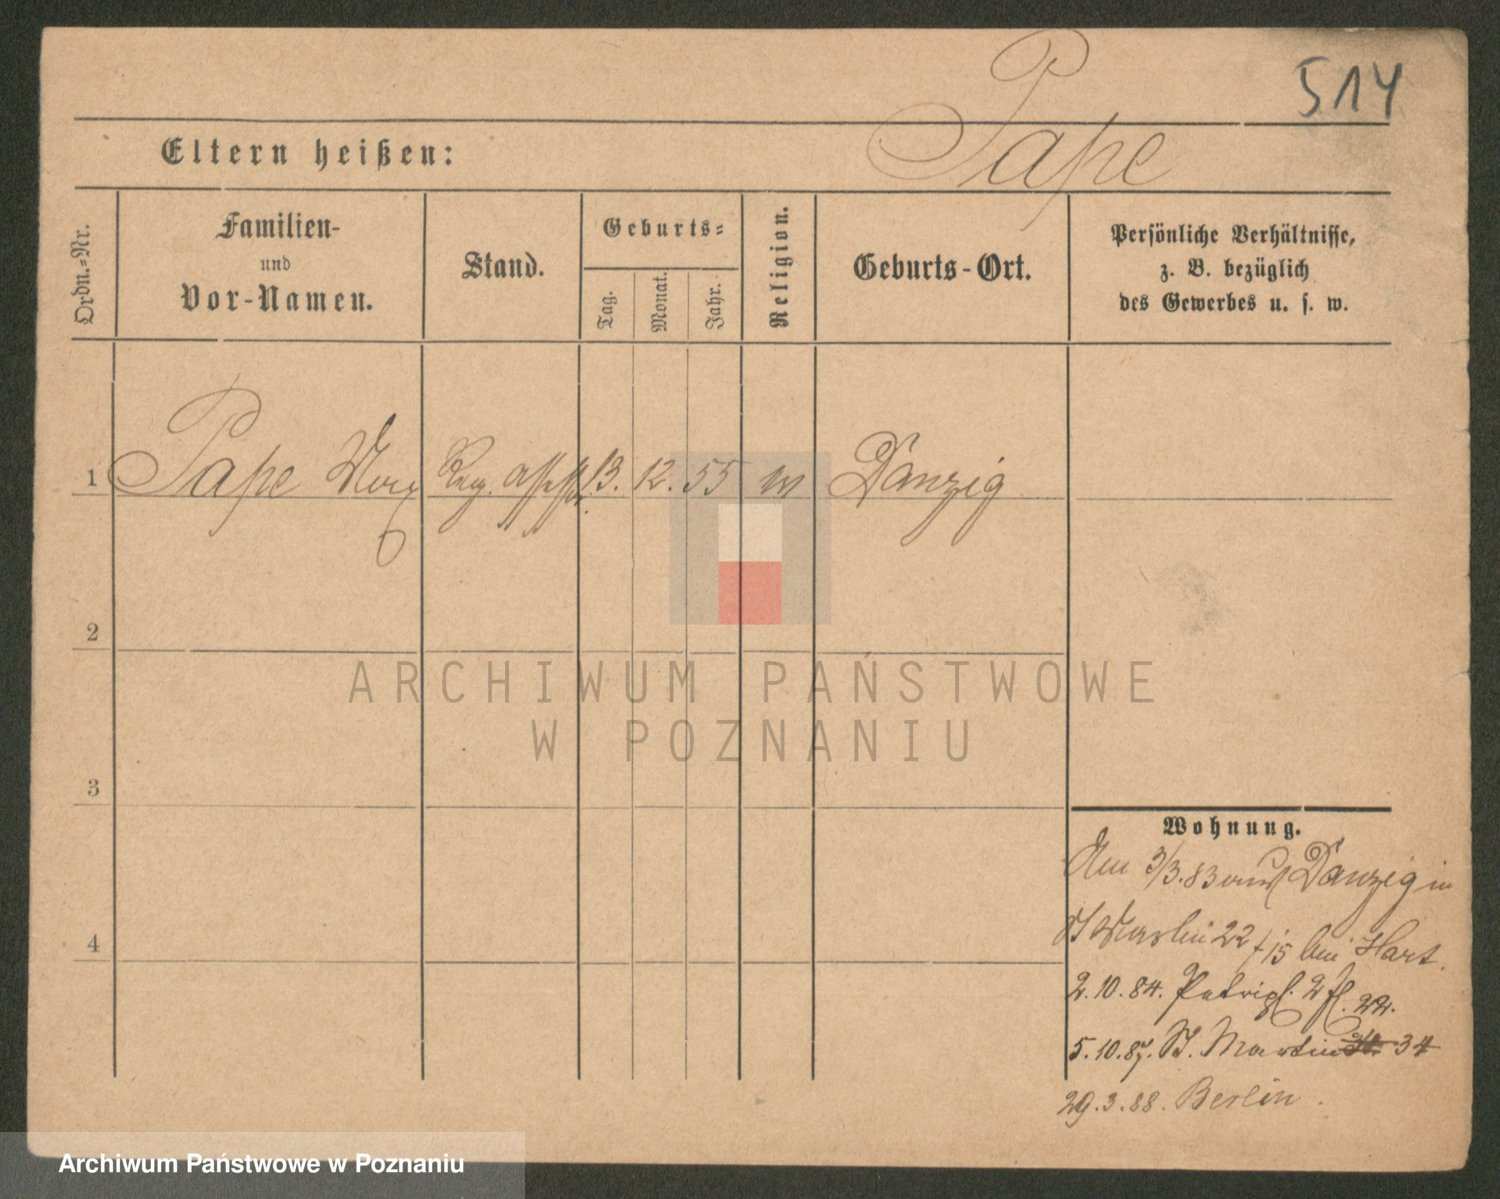 514
Pape
Eltern heißen:
Ordn.-Nr.
Familien-
und
Vor-Namen.
Stand.
Geburts-
Tag.
Monat.
Jahr.
Religion.
Geburts-Ort.
Persönliche Verhältnisse,
z. B. bezüglich
des Gewerbes u. s. w.
1 Pape Max Reg. assessor 13. 12. 55 Danzig
2
3
4
Wohnung.
Am 3/3.83 aus Danzig in
St Martin 22 / 15 bei Hart.
2.10.84. 22.
5.10.87. St. Martin 34
29.3.88. Berlin.
ARCHIWUM PAŃSTWOWE
W POZNANIU
Archiwum Państwowe w Poznaniu